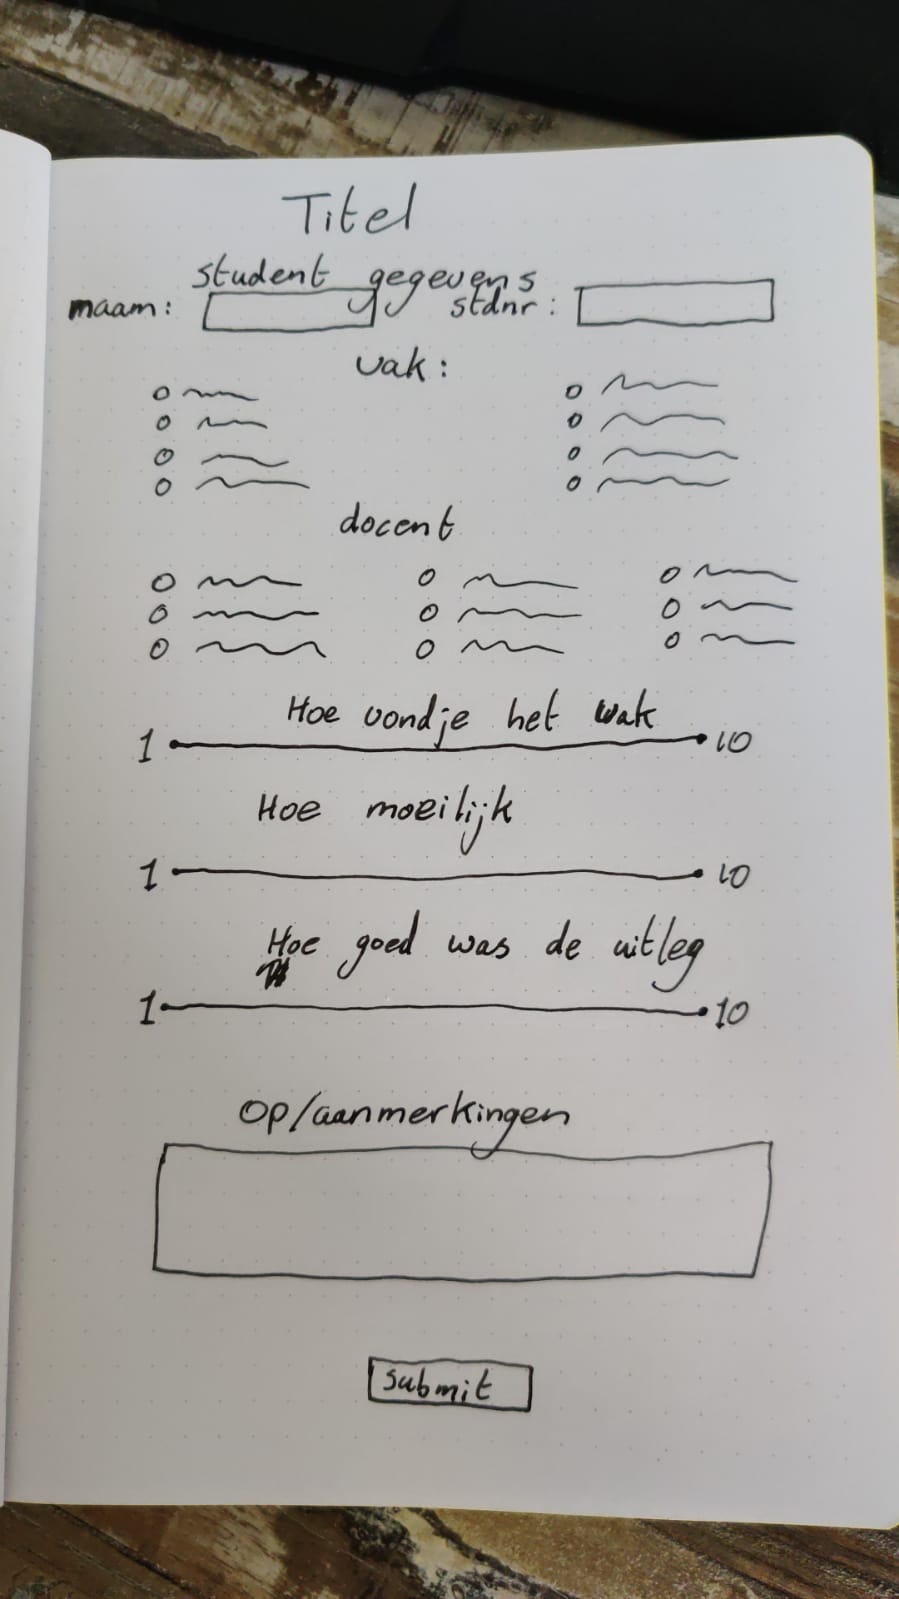 Titel
student gegevens
naam: stdnr:
vak:
docent
Hoe vond je het vak
1 10
Hoe moeilijk
1 10
Hoe goed was de uitleg
1 10
op/aanmerkingen
submit